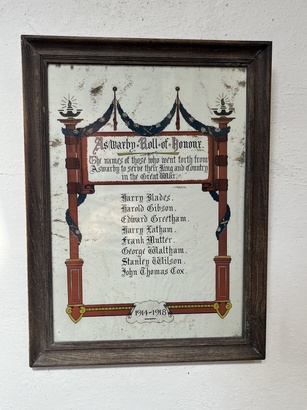 Aswarby·Roll·of·Honour.
The names of those who went forth from
Aswarby to serve their King and Country
in the Great War.
Harry Blades.
Harold Gibson.
Edward Greetham.
Harry Latham.
Frank Mutter.
George Waltham.
Stanley Wilson.
John Thomas Cox.
1914–1918